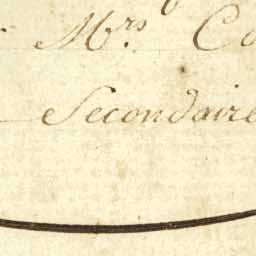 Mrs Co
Secondaire